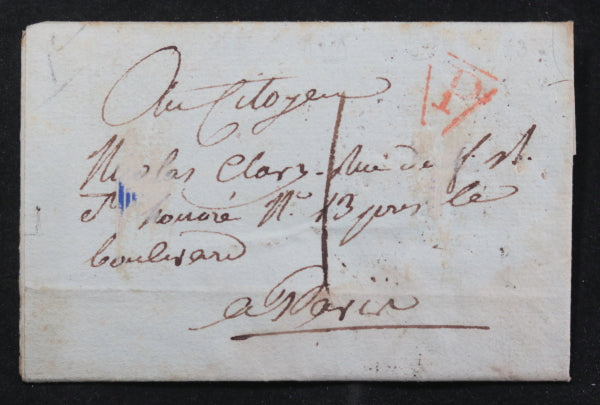 Au Citoyen
Nicolas Clary Rue du f. st.
honoré No. 13 près le
boulevard
a Paris